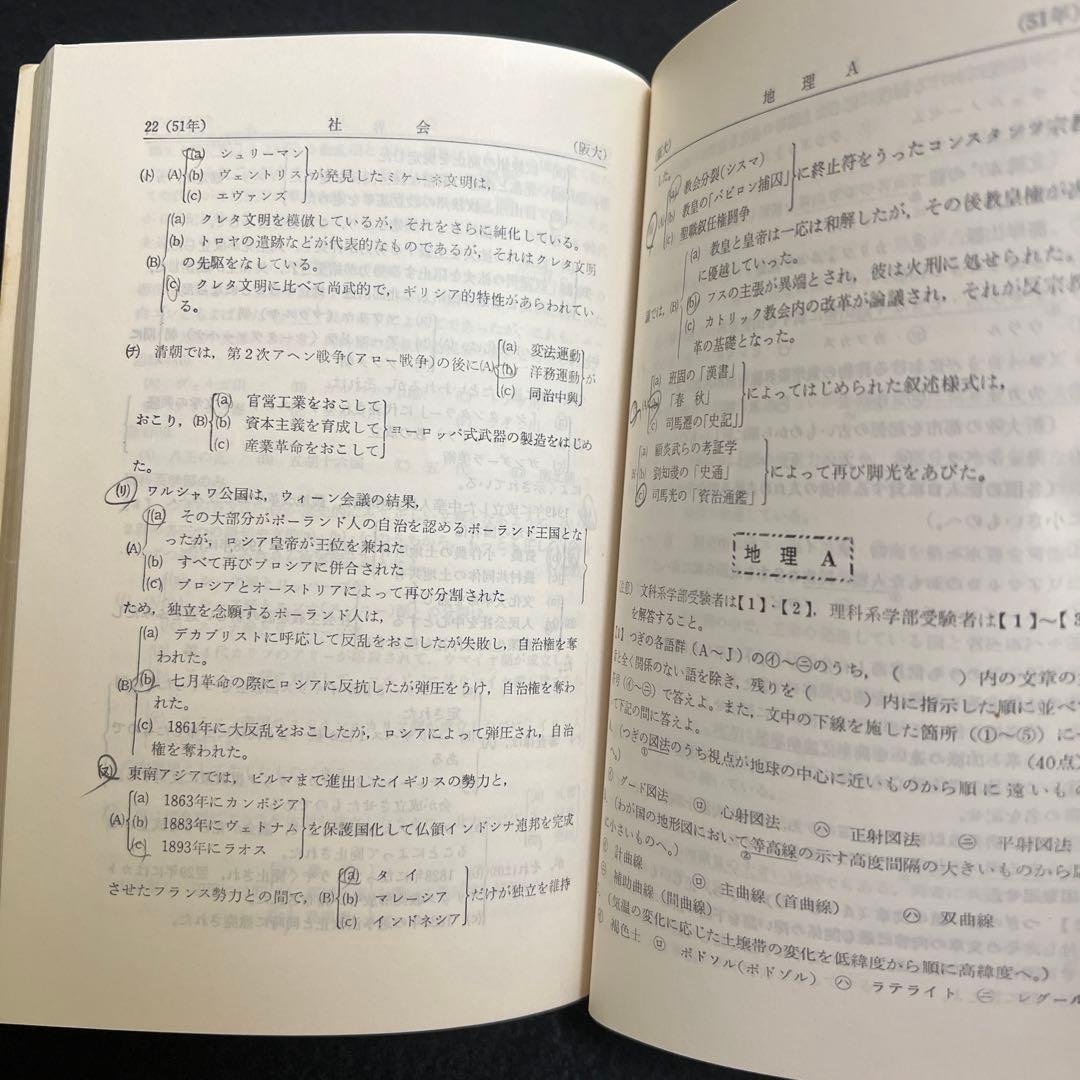 22 (51年) 社会 (阪大)
(ト) (A) (a) シュリーマン
(b) ヴェントリス
(c) エヴァンズ
が発見したミケーネ文明は,
(B) (a) クレタ文明を模倣しているが, それをさらに純化している。
(b) トロヤの遺跡などが代表的なものであるが, それはクレタ文明
の先駆をなしている。
(c) クレタ文明に比べて尚武的で, ギリシア的特性があらわれてい
る。
(チ) 清朝では, 第2次アヘン戦争(アロー戦争)の後に(A) (a) 変法運動
(b) 洋務運動
(c) 同治中興
が
おこり, (B) (a) 官営工業をおこして
(b) 資本主義を育成して
(c) 産業革命をおこして
ヨーロッパ式武器の製造をはじめ
た。
(リ) ワルシャワ公国は, ウィーン会議の結果,
(A) (a) その大部分がポーランド人の自治を認めるポーランド王国とな
ったが, ロシア皇帝が王位を兼ねた
(b) すべて再びプロシアに併合された
(c) プロシアとオーストリアによって再び分割された
ため, 独立を念願するポーランド人は,
(B) (a) デカブリストに呼応して反乱をおこしたが失敗し, 自治権を奪
われた。
(b) 七月革命の際にロシアに反抗したが弾圧をうけ, 自治権を奪わ
れた。
(c) 1861年に大反乱をおこしたが, ロシアによって弾圧され, 自治
権を奪われた。
(ヌ) 東南アジアでは, ビルマまで進出したイギリスの勢力と,
(A) (a) 1863年にカンボジア
(b) 1883年にヴェトナム
(c) 1893年にラオス
を保護国化して仏領インドシナ連邦を完成
させたフランス勢力との間で, (B) (a) タイ
(b) マレーシア
(c) インドネシア
だけが独立を維持
(51年)
地理A
(阪大)
した。
(a) 教会分裂(シスマ)
(b) 教皇の「バビロン捕囚」
(c) 聖職叙任権闘争
に終止符をうったコンスタンツ宗教
議では, (B) (a) 教皇と皇帝は一応は和解したが, その後教皇権が
に優越していった。
(b) フスの主張が異端とされ, 彼は火刑に処せられた。
(c) カトリック教会内の改革が論議され, それが反宗教
革の基礎となった。
(a) 班固の「漢書」
(b) 「春秋」
(c) 司馬遷の「史記」
によってはじめられた叙述様式は,
(a) 顧炎武らの考証学
(b) 劉知幾の「史通」
(c) 司馬光の「資治通鑑」
によって再び脚光をあびた。
地理A
注意) 文科系学部受験者は【1】・【2】, 理科系学部受験者は【1】~【3
を解答すること。
【1】つぎの各語群(A~J)の㋑~㊁のうち, ( )内の文章の
と全く関係のない語を除き, 残りを( )内に指示した順に並べ
符号(㋑~㊁)で答えよ。また, 文中の下線を施した箇所(①~⑤)に
て下記の問に答えよ。 (40点)
(つぎの図法のうち視点が地球の中心に近いものから順に遠いも
①
へ。)
グード図法 ㋺ 心射図法 ㋩ 正射図法 ㊁ 平射図法
(わが国の地形図において等高線の示す高度間隔の大きいものから
②
に小さいものへ。)
計曲線 ㋺ 主曲線(首曲線) ㋩ 双曲線
補助曲線(間曲線)
(気温の変化に応じた土壌帯の変化を低緯度から順に高緯度へ。)
褐色土 ㋺ ポドソル(ポドゾル) ㋩ ラテライト ㊁ レグール